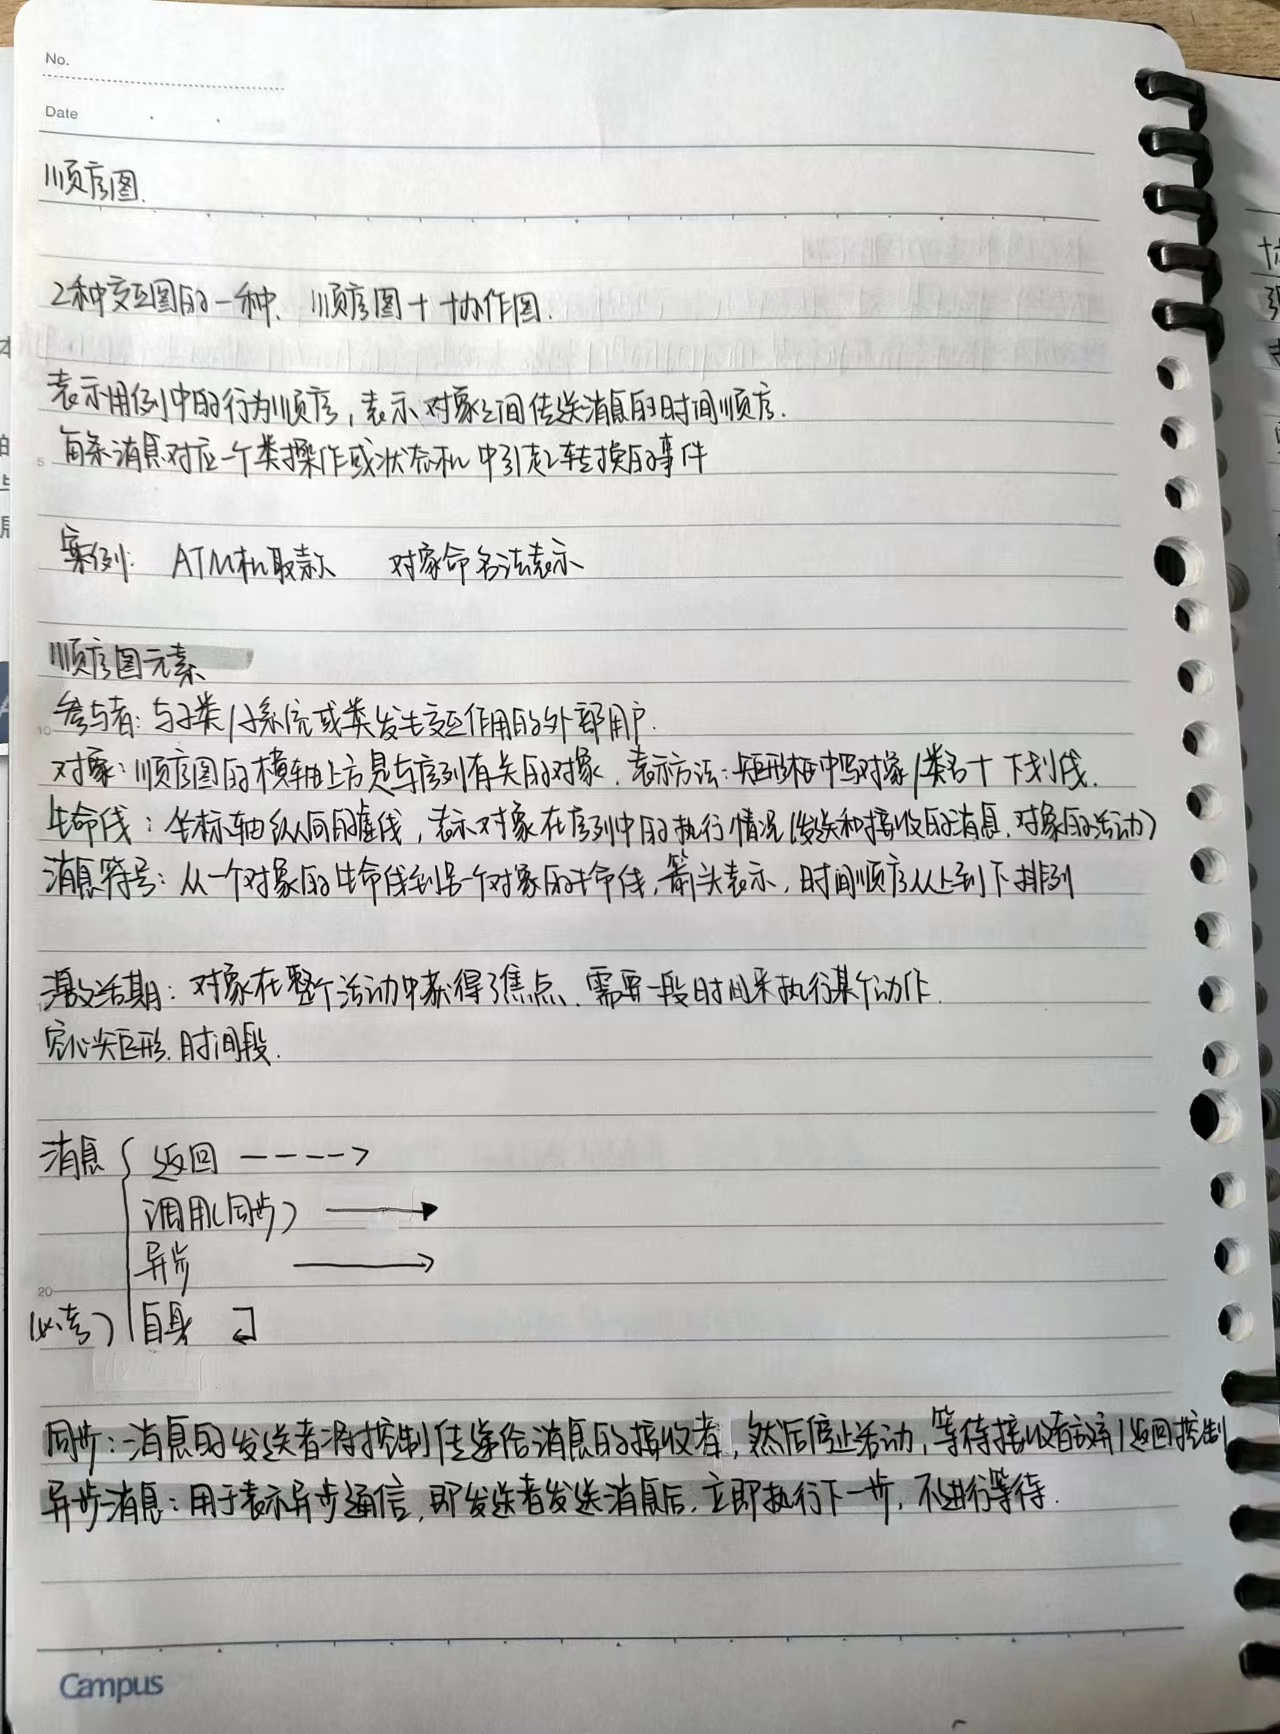 No.
Date
顺序图.
2种交互图的一种、顺序图+协作图.
表示用例中的行为顺序,表示对象之间传送消息的时间顺序.
每条消息对应一个类操作或状态机中引起转换的事件
案例: ATM机取款 对象命名法表示
顺序图元素
参与者:与子类/子系统或类发生交互作用的外部用户.
对象:顺序图的横轴上方是与序列有关的对象.表示方法:矩形框中写对象/类名+下划线.
生命线:坐标轴纵向的虚线,表示对象在序列中的执行情况(发送和接收的消息,对象的活动)
消息符号:从一个对象的生命线到另一个对象的生命线,箭头表示,时间顺序从上到下排列
激活期:对象在整个活动中获得了焦点、需要一段时间来执行某个动作.
空心矩形.时间段.
消息{ 返回 ---->
调用(同步)
异步
(必考) 自身
同步:消息的发送者将控制传递给消息的接收者,然后停止活动,等待接收者放弃/返回控制
异步消息:用于表示异步通信,即发送者发送消息后,立即执行下一步,不进行等待.
Campus